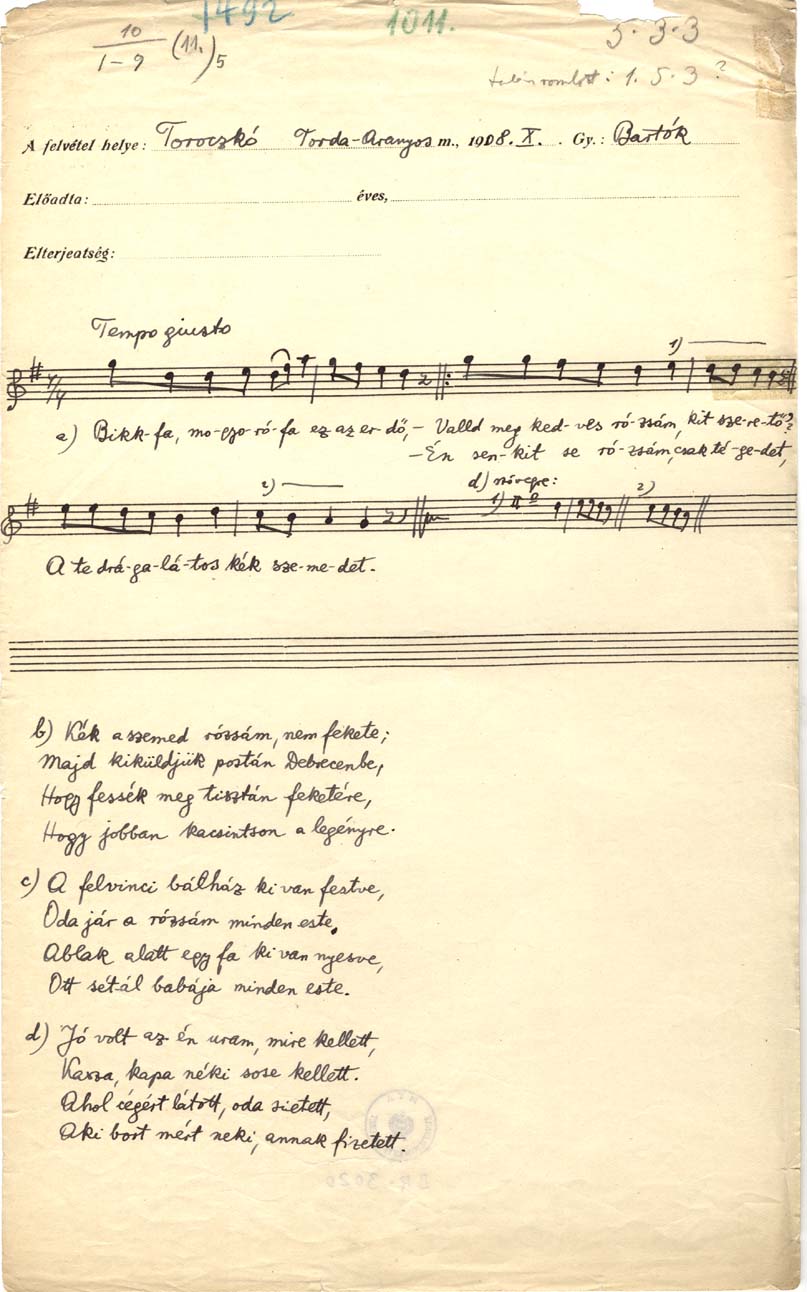 1492
1011.
5·3·3
10
1-9 (11.)5
talán romlott: 1. 5. 3 ?
A felvétel helye: Toroczkó Torda-Aranyos m., 1908. X. Gy.: Bartók
Előadta: éves,
Elterjeatség:
Tempo giusto
1)
a) Bikk-fa, mo-gyo-ró-fa ez az er-dő, – Valld meg ked-ves ró-zsám, kit sze-re-tő?
– Én sen-kit se ró-zsám, csak té-ge-det,
2)
d) szövegre:
1)
2)
A te drá-ga-lá-tos kék sze-me-det.
b) Kék a szemed rózsám, nem fekete;
Majd kiküldjük postán Debrecenbe,
Hogy fessék meg tisztán feketére,
Hogy jobban kacsintson a legényre.
c) A felvinci bálház ki van festve,
Oda jár a rózsám minden este.
Ablak alatt egy fa ki van nyesve,
Ott sétál babája minden este.
d) Jó volt az én uram, mire kellett,
Kasza, kapa néki sose kellett.
Ahol cégért látott, oda sietett,
Aki bort mért neki, annak fizetett.